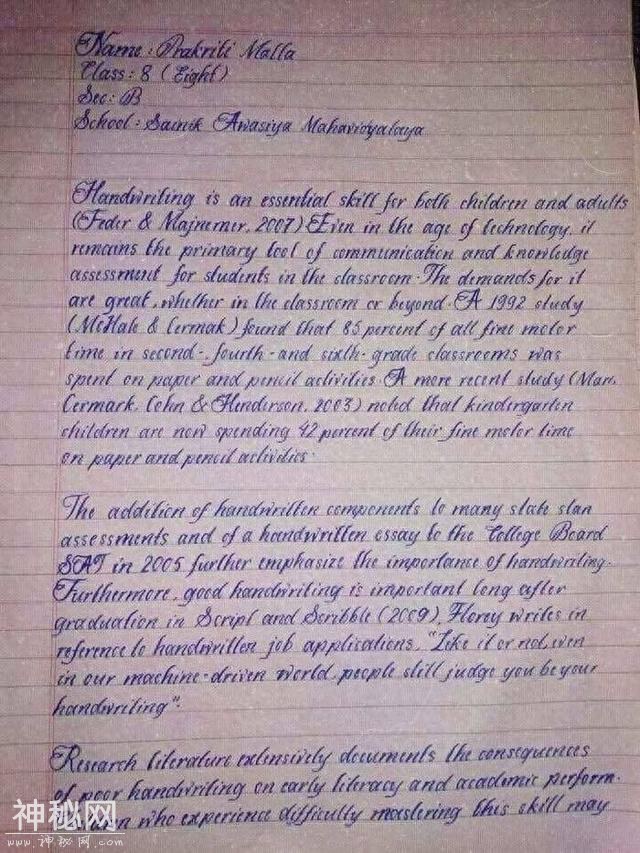 Name : Prakriti Malla
Class : 8 ( Eight )
Sec : B
School : Sainik Awasiya Mahavidyalaya
Handwriting is an essential skill for both children and adults
(Feder & Majnemer, 2007) Even in the age of technology, it
remains the primary tool of communication and knowledge
assessment for students in the classroom. The demands for it
are great, whether in the classroom or beyond. A 1992 study
(McHale & Cermak) found that 85 percent of all fine motor
time in second-, fourth- and sixth- grade classrooms was
spent on paper and pencil activities. A more recent study (Marr,
Cermark, Cohn & Henderson, 2003) noted that kindergarten
children are now spending 42 percent of their fine motor time
on paper and pencil activities.
The addition of handwritten components to many state stan
assessments and of a handwritten essay to the College Board
SAT in 2005 further emphasize the importance of handwriting.
Furthermore, good handwriting is important long after
graduation in Script and Scribble (2009), Florey writes in
reference to handwritten job applications, "Like it or not, even
in our machine-driven world, people still judge you be your
handwriting".
Research literature extensively documents the consequences
of poor handwriting on early literacy and academic perform.
who experience difficulty mastering this skill may
神秘网
www.神秘网.com